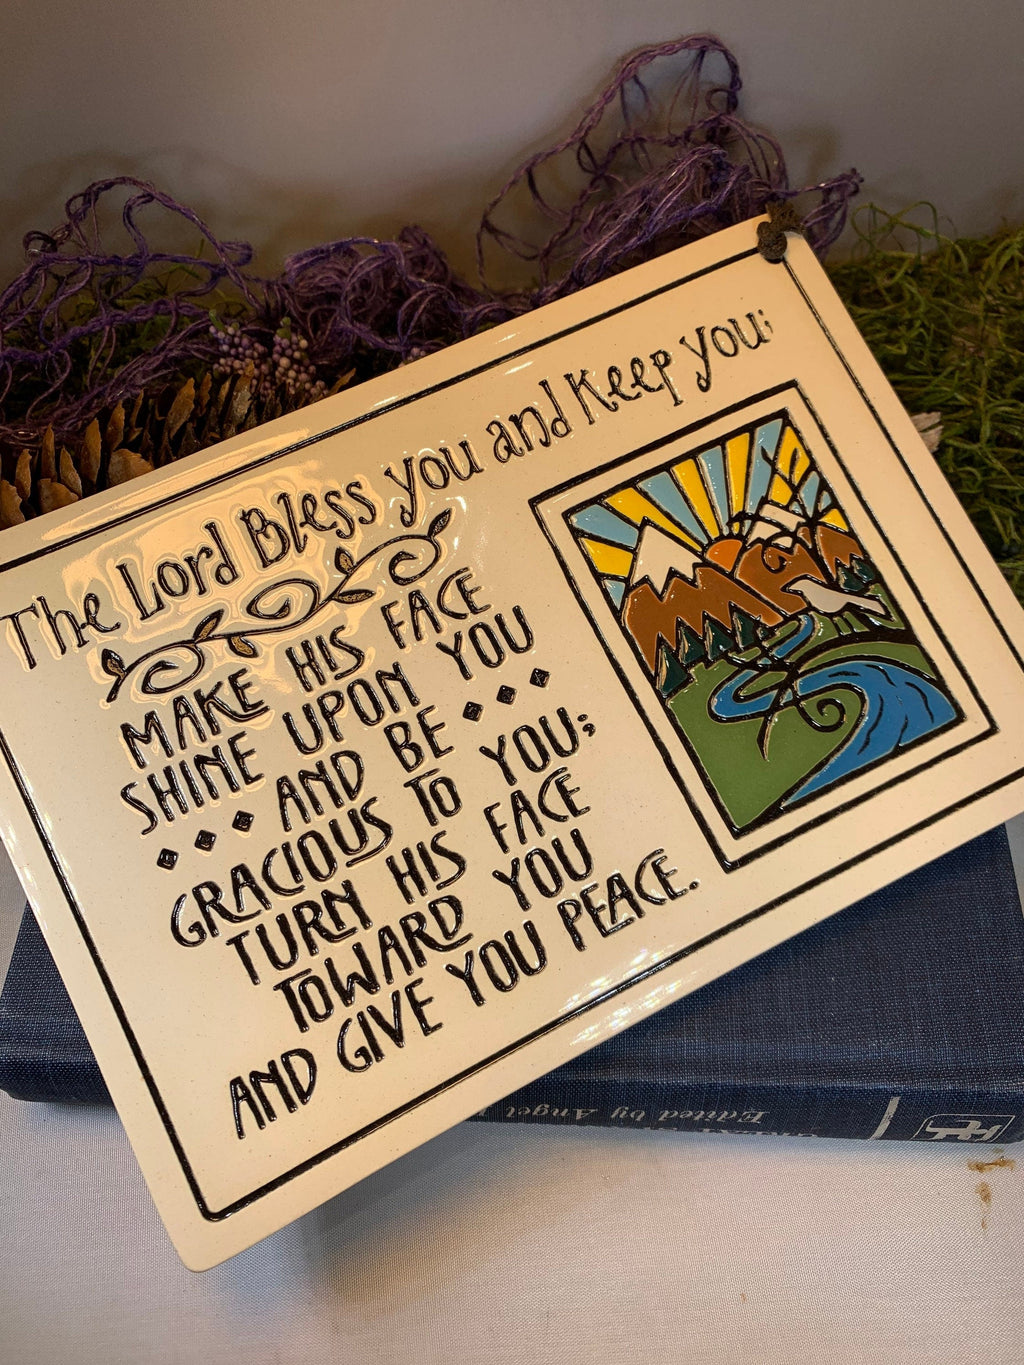 The Lord Bless you and Keep you;
MAKE HIS FACE
SHINE UPON YOU
AND BE
GRACIOUS TO YOU;
TURN HIS FACE
TOWARD YOU
AND GIVE YOU PEACE.
Edited by Angel